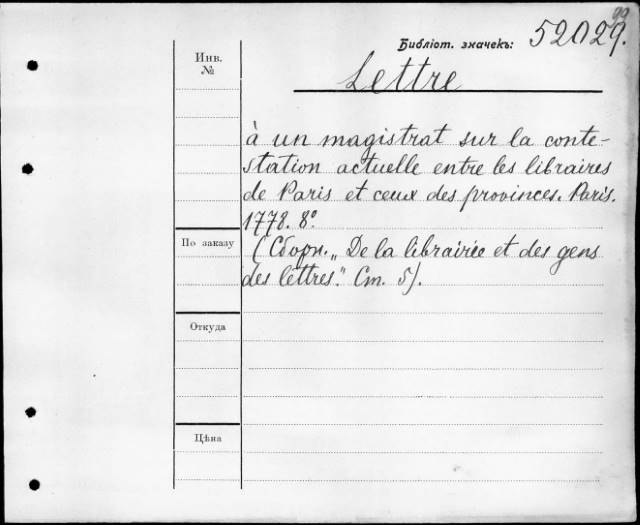 99
Библіот. значекъ: 52029.
Инв.
№
Lettre
à un magistrat sur la conte-
station actuelle entre les libraires
de Paris et ceux des provinces. Paris.
1778. 8º
По заказу
(Сборн. „De la librairie et des gens
des lettres." Ст. 5).
Откуда
Цѣна